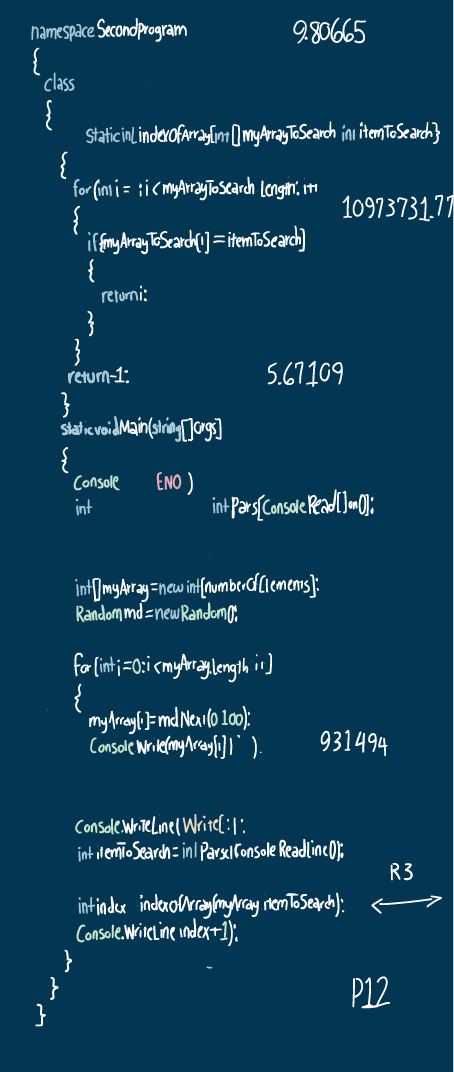 namespace SecondProgram 9.80665
{
class
{
Static int indexOfArray[int[]myArrayToSearch int itemToSearch}
{
for(int i= ;i<myArrayToSearch Length; i++
10973731.77
{
if{myArrayToSearch[i]=itemToSearch]
{
return i:
}
}
return-1: 5.67109
}
static void Main(string[]args]
{
Console ENO )
int int Pars[Console Read[]on();
int[]myArray=new int[numberOfElements]:
Random rnd=new Random();
for[int i=0:i<myArray.length i;]
{
myArray[i]=rnd Next(0 100):
Console Write(myArray[i]1 ).
931494
Console.WriteLine( Write[:1:
int itemToSearch=int Parse(Console ReadLine());
R3
int index indexOfArray(myArray itemToSearch):
Console.WriteLine index+1);
}
}
P12
}